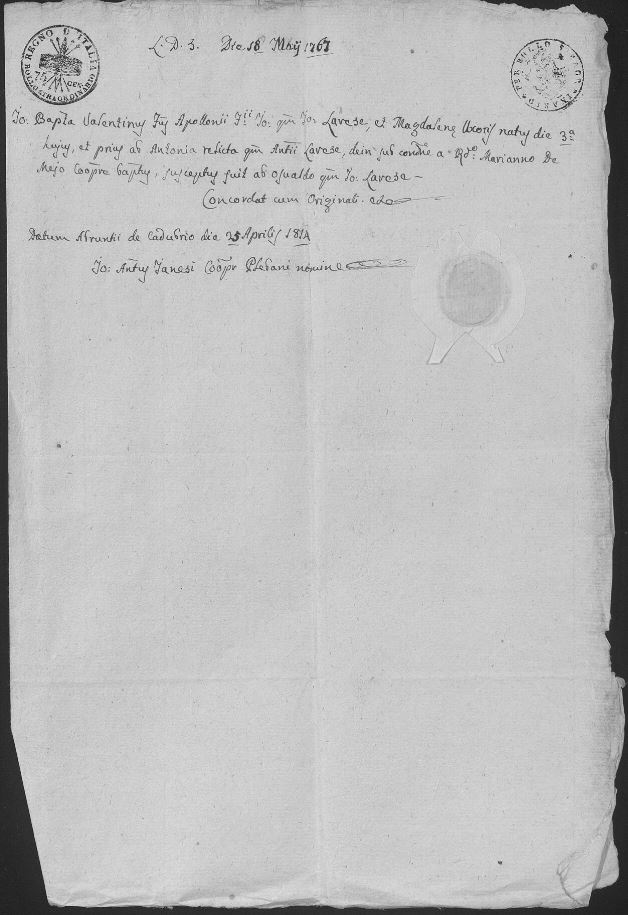 REGNO D'ITALIA
75 CEN.
BOLLO STRAORDINARIO
PER BOLLO
L. D. 3. Die 18 Maij 1767
Jo: Bapta Valentinus Fus Apollonii Fii Jo: qm Jo: Lavese, et Magdalene Uxoris natus die 3a
hujus, et prius ab Antonia relicta qm Antii Lavese, dein sub condne a Rdo: Marianno De
Mejo Coopre baptus, susceptus fuit ab Osualdo qm Jo: Lavese -
Concordat cum Originali
Datum Afruntii de Cadubrio die 25 Aprilis 1814
Jo: Antus Janesi Coopr Plebani nomine